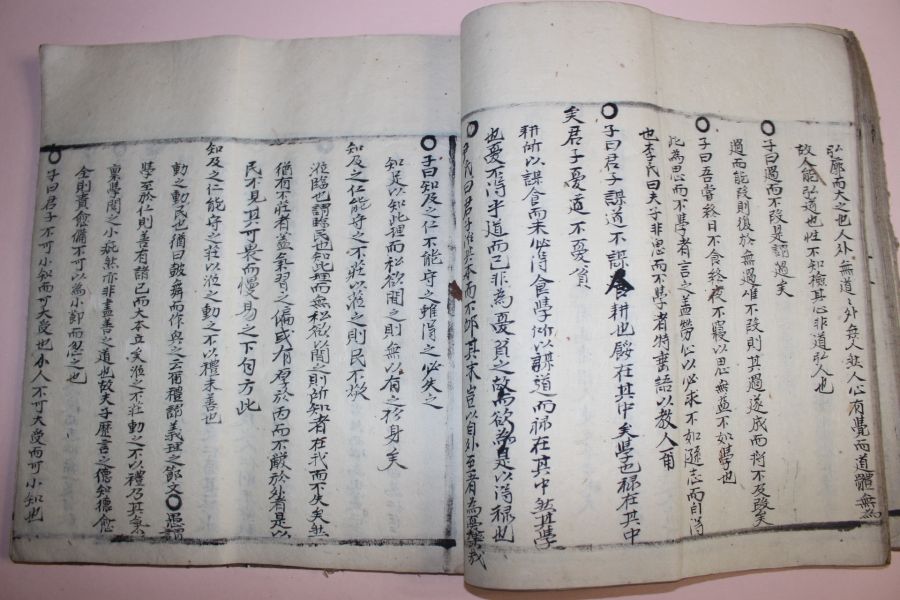 弘廓而大之也人外無道道外無人然人心有覺而道體無為
故人能弘道也性不知檢其心非道弘人也
○子曰過而不改是謂過矣
過而能改則復於無過唯不改則其過遂成而將不及改矣
○子曰吾嘗終日不食終夜不寢以思無益不如學也
此為思而不學者言之盖勞心以必求不如遜志而自得
也李氏曰夫子非思而不學者特垂語以教人甭
○子曰君子謀道不謀食耕也餒在其中矣學也祿在其中
矣君子憂道不憂貧
耕所以謀食而未必得食學所以謀道而祿在其中然其學
也憂不得乎道而已非為憂貧之故而欲為是以得祿也
○尹氏曰君子治其本而不卹其末豈以自外至者為憂樂哉
○子曰知及之仁不能守之雖得之必失之
知足以知此理而私欲間之則無以有之於身矣
知及之仁能守之不莊以涖之則民不敬
涖臨也謂臨民也知此理而無私欲以間之則所知者在我而不失矣然
猶有不莊者盖氣習之偏或有厚於內而不嚴於外者是以
民不見其可畏而慢易之下句方此
知及之仁能守之莊以涖之動之不以禮未善也
動之動民也猶曰皷舞而作興之云爾禮謂義理之節文○愚謂
學至於仁則善有諸己而大本立矣涖之不莊動之不以禮乃其氣
稟學問之小疵然亦非盡善之道也故夫子歷言之使知德愈
全則責愈備不可以為小節而忽之也
○子曰君子不可小知而可大受也小人不可大受而可小知也